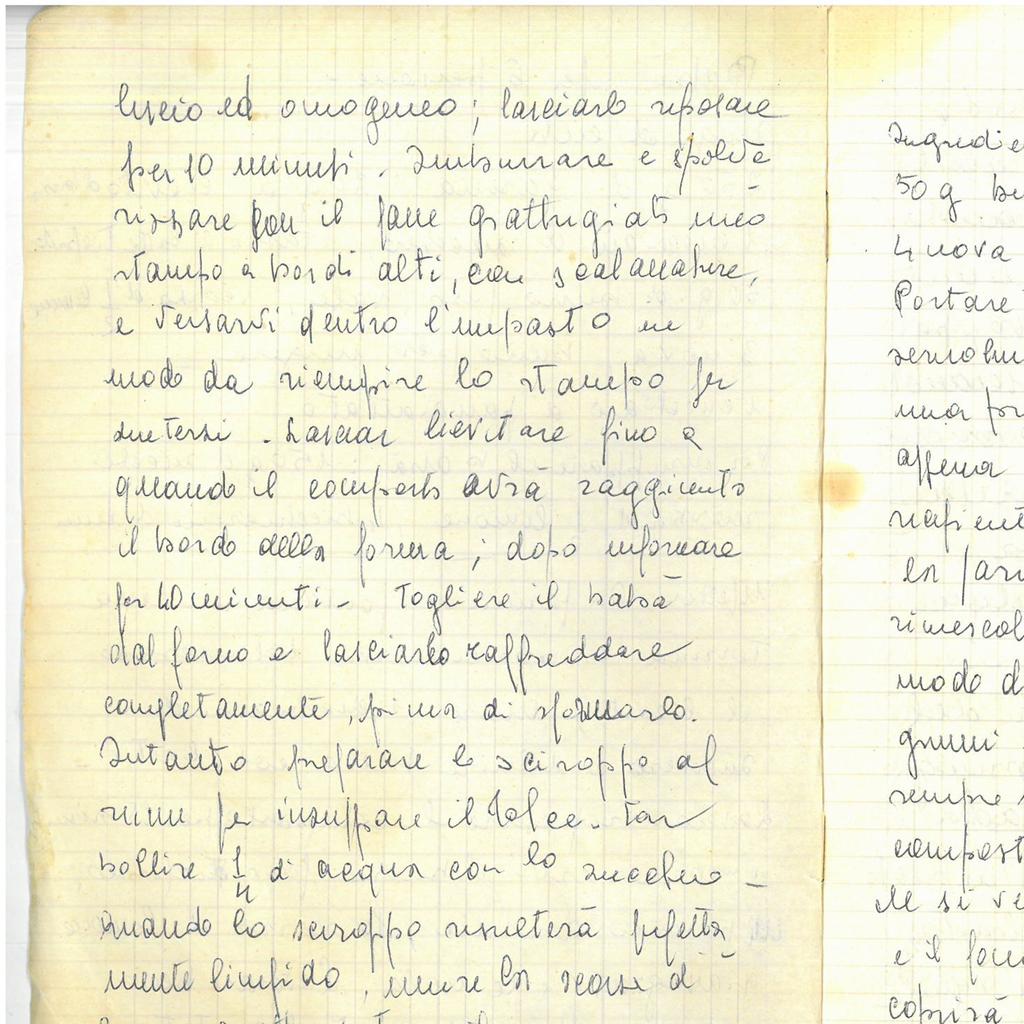 liscio ed omogeneo; lasciarlo riposare
per 10 minuti. Imburrare e spolve
rizzare con il pane grattugiato uno
stampo a bordi alti, con scalanature,
e versarvi dentro l'impasto in
modo da riempire lo stampo per
metersi. Lasciar lievitare fino a
quando il composto avrà raggiunto
il bordo della forma; dopo infornare
per 40 minuti - Togliere il babà
dal forno e lasciarlo raffreddare
completamente, prima di sformarlo.
Intanto preparare lo sciroppo al
rum per insuppare il dolce. Far
bollire 1/4 di acqua con lo zucchero -
Quando lo sciroppo risulterà perfetta
mente limpido, unire la scorsa d
Ingredie
50 g bu
4 uova
Portare
semolin
una for
appena
recipient
la fari
rimescol
modo d
grumi
sempre s
compost
Se si ve
e il fon
coprirà